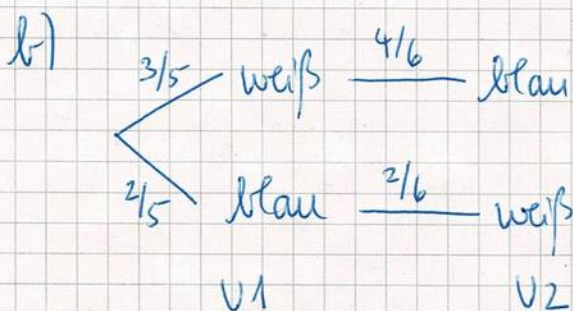 b)
3/5 weiß 4/6 blau
2/5 blau 2/6 weiß
U1 U2